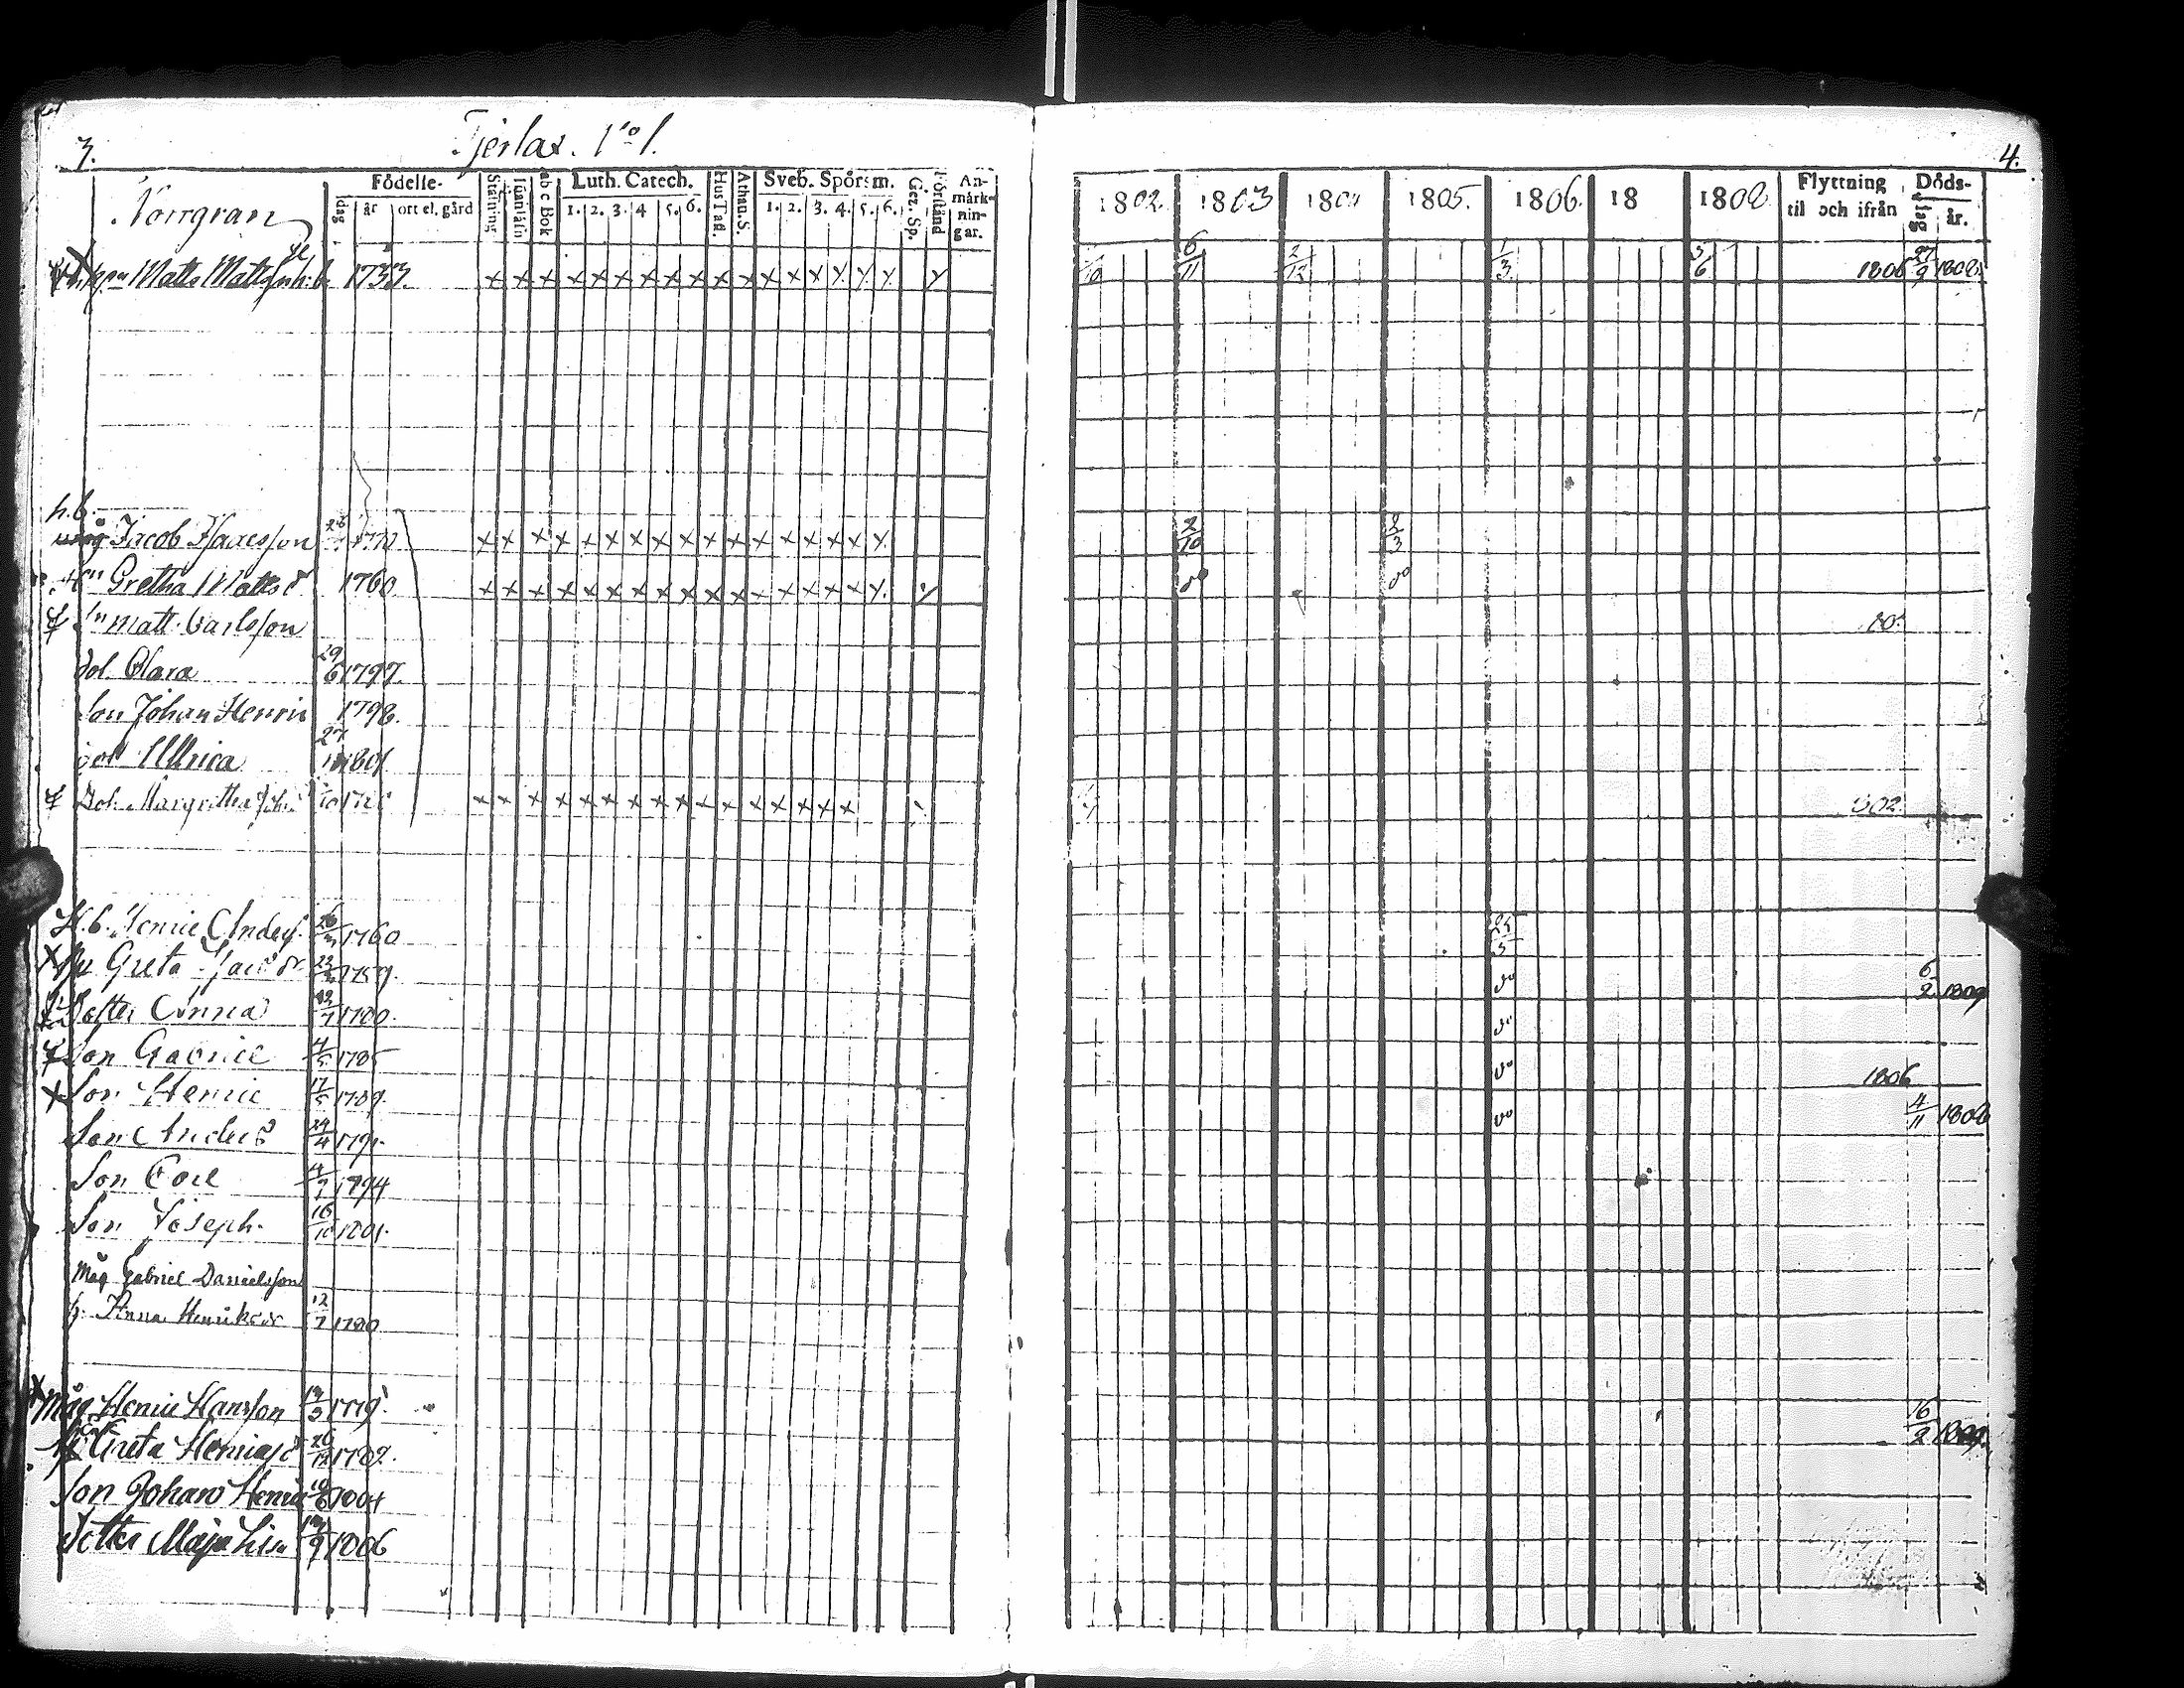 3.
Tjerlax. No 1.
4.
Norrgran
Födelse-
dag
år
ort el. gård
Stafning
ab c Bok
Luth. Catech.
1. 2. 3. 4 5. 6.
Hus Tafl.
Athan. S.
Sveb. Spörsm.
1. 2. 3. 4. 5. 6.
Gez. Sp.
Förstånd
An-
märk-
nin-
gar.
1802. 1803 1804 1805. 1806. 18 1808
Flyttning
til och ifrån
Döds-
dag
år.
Matts Matts 1733. x x x x x x x x x x x x x x x x x 6/11 2/12 1/3 5/6 1806 27/9 1808
h.b.
måg Jacob Isacsson x x x x x x x x x x x x x x x x 2/10 2/3
Gretha Matts d 1760 x x x x x x x x x x x x x x x x do do
Matt. Carlsson
dot. Clara 29/6 1797.
Son Johan Henric 1798.
dot Ulrica 27 1801
Dot. Margretha x x x x x x x x x x x x x x x 1802
H.b. Henric Anders. 1760 25/5
Hu Greta Jac dr 1759. do 6/2 1809
Dotter Anna 1780. do
Son Gabriel 4/5 1785 do 1806
Son Henric 17/5 1789. do 4/11 1806
Son Anders 24/4 1791.
Son Eric 1794
Son Joseph. 16/10 1801.
Måg Gabriel Danielsson
h. Anna Henriksdr 12/7 1780
Måg Henric Hansson 1779. 16/2 1809.
Greta Henricsd 26/12 1782.
Son Johan Henric 1804
Dotter Maja Lisa 1806